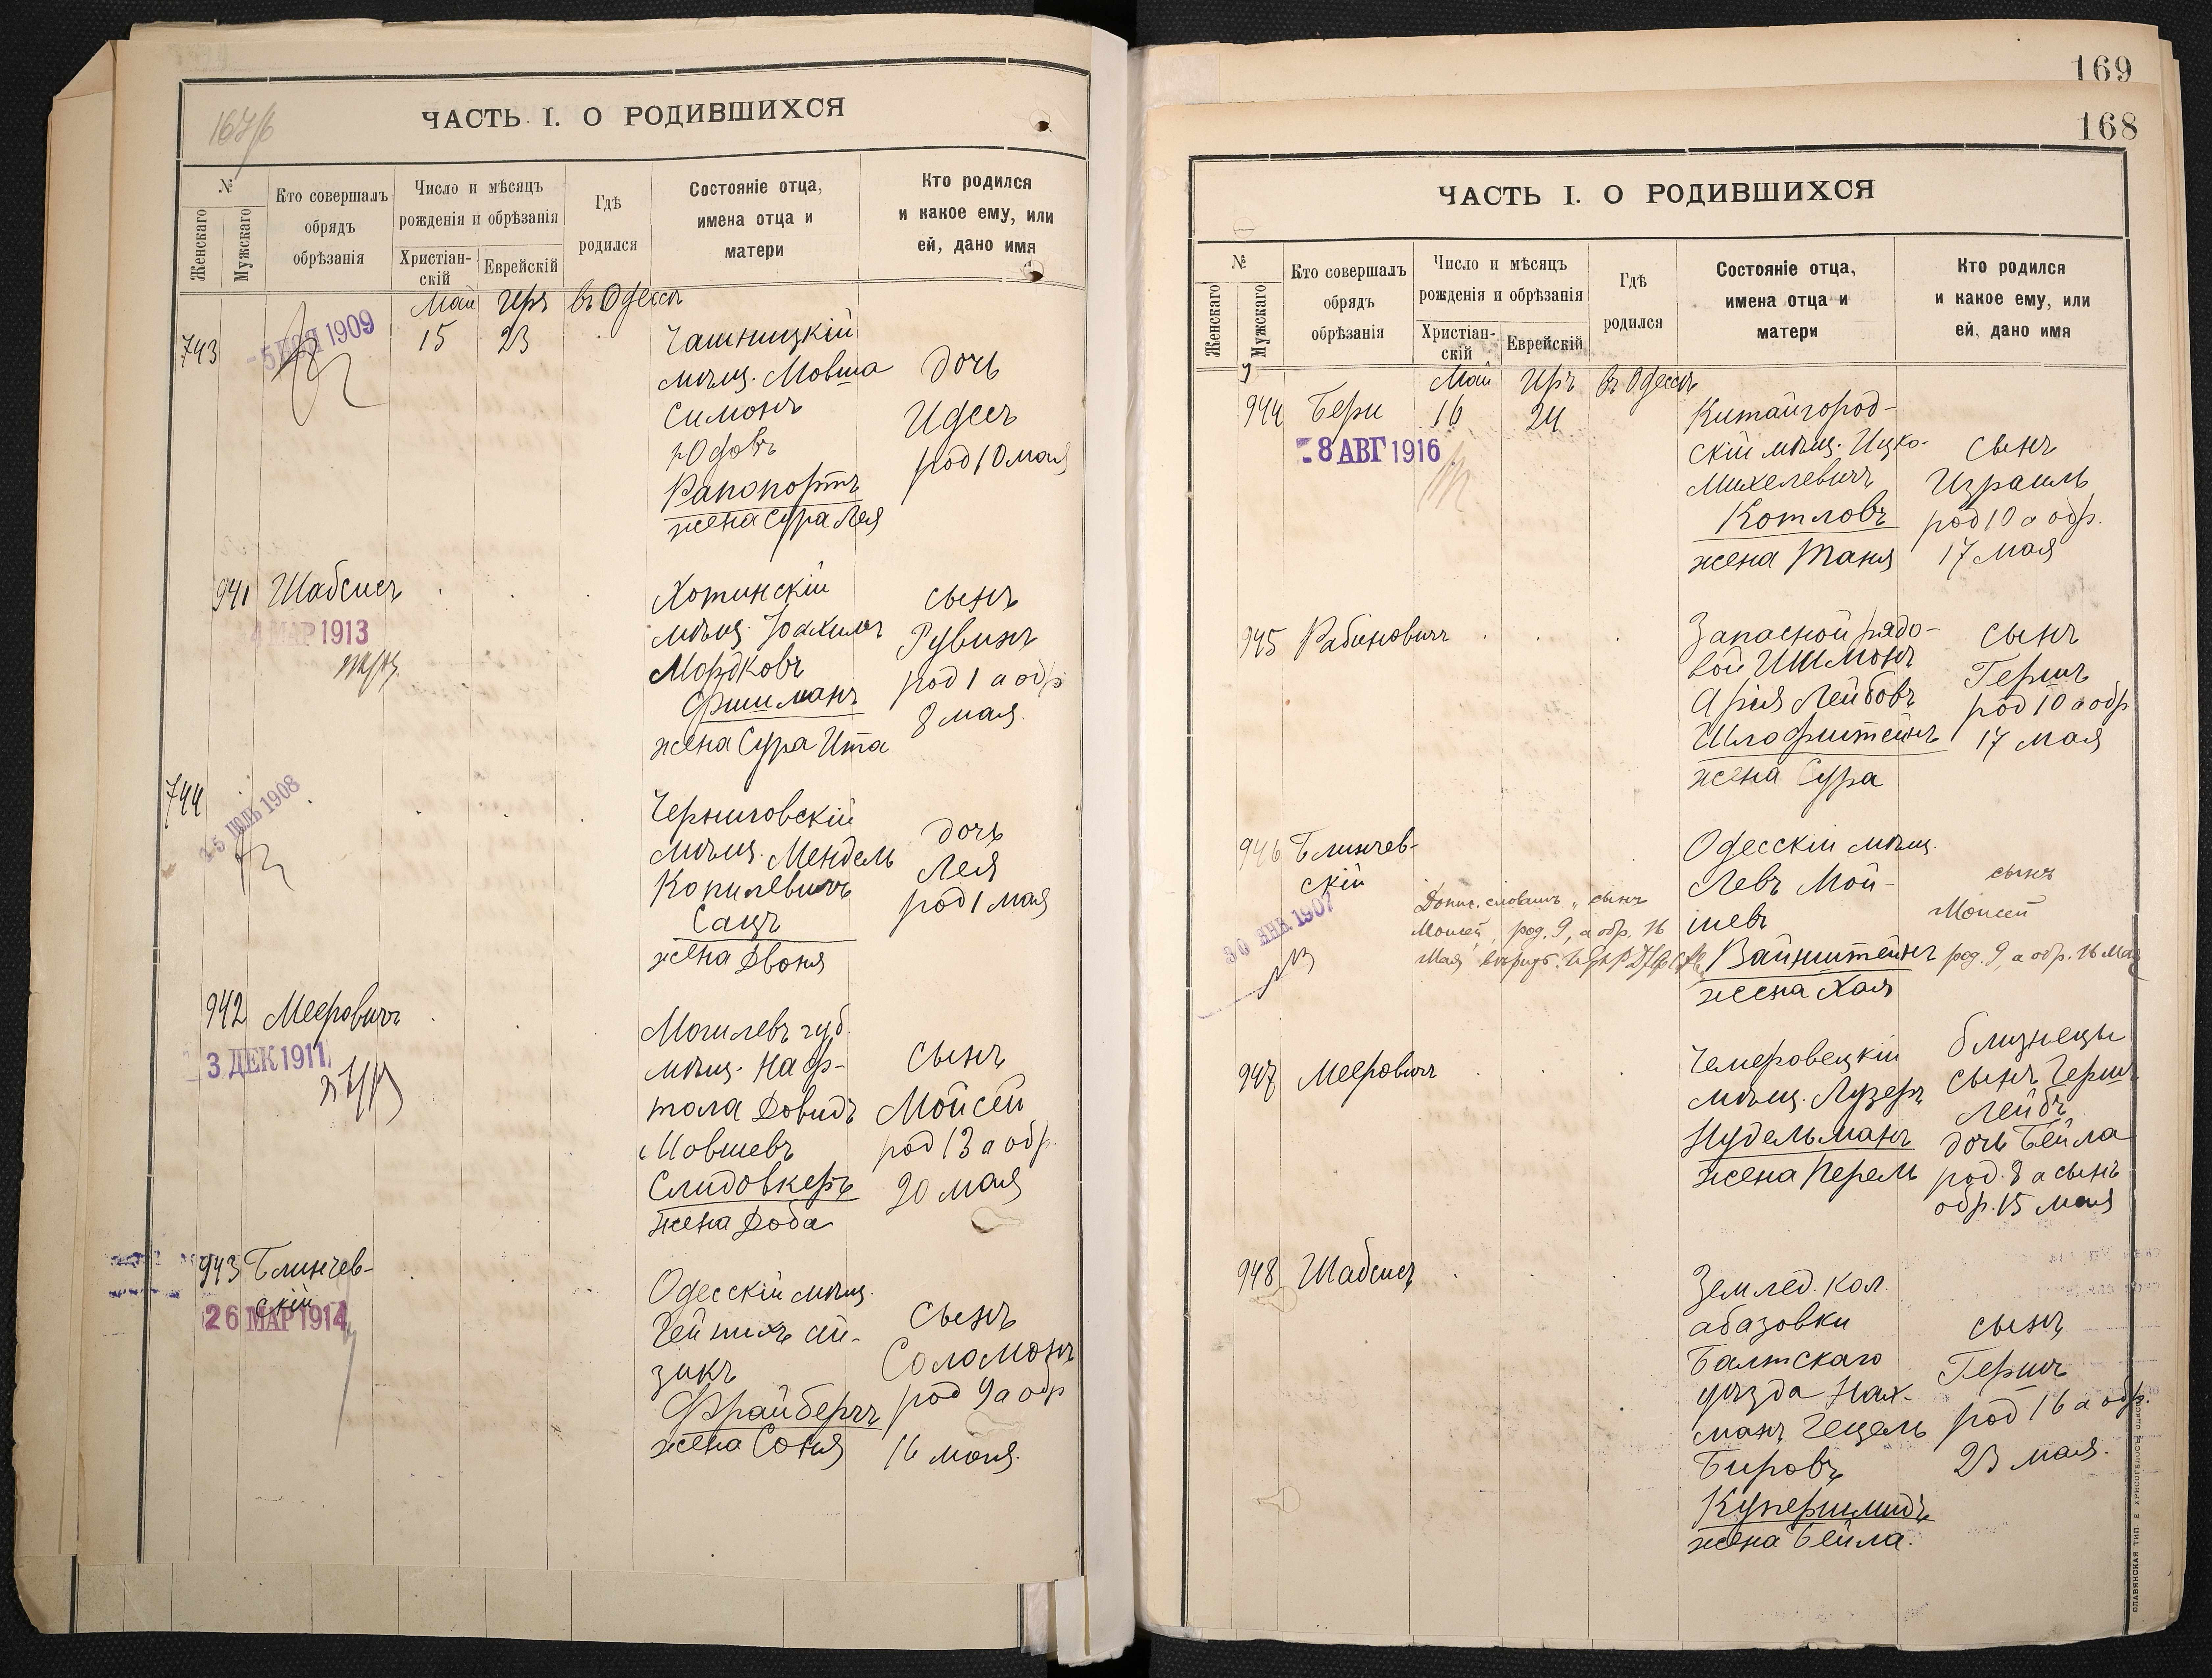 167/б
ЧАСТЬ I. О РОДИВШИХСЯ
№
Женскаго
Мужскаго
Кто совершалъ
обрядъ
обрѣзанія
Число и мѣсяцъ
рожденія и обрѣзанія
Христіан-
скій
Еврейскій
Гдѣ
родился
Состояніе отца,
имена отца и
матери
Кто родился
и какое ему, или
ей, дано имя
Май Іяръ въ Одессѣ
743
1909
15 23
Чашницкій
мѣщ. Мовша
Симонъ
Юдовъ
Рапопортъ
жена Сура Лея
дочь
Идесъ
род 10 мая
941 Шабсисъ
4 МАР 1913
Хотинскій
мѣщ. Іоахимъ
Мордковъ
Фишманъ
жена Сура Ита
сынъ
Рувинъ
род 1 а обр
8 мая.
744
ІЮЛЬ 1908
Черниговскій
мѣщ. Мендель
Копилевичъ
Сацъ
жена Двоня
дочь
Лея
род 1 мая
942 Мееровичъ
3 ДЕК 1911
Могилевъ губ.
мѣщ. Наф-
тола Довидъ
Мовшевъ
Слидовкеръ
жена Доба
сынъ
Мойсей
род 13 а обр.
20 мая
943 Блинчев-
скій
26 МАР 1914
Одесскій мѣщ.
Гейнихъ Ай-
зикъ
Фрайбергъ
жена Соня
сынъ
Соломонъ
род 9 а обр
16 мая.
169
168
ЧАСТЬ I. О РОДИВШИХСЯ
№
Женскаго
Мужскаго
Кто совершалъ
обрядъ
обрѣзанія
Число и мѣсяцъ
рожденія и обрѣзанія
Христіан-
скій
Еврейскій
Гдѣ
родился
Состояніе отца,
имена отца и
матери
Кто родился
и какое ему, или
ей, дано имя
Май Іяръ въ Одессѣ
944 Бери 16 24
8 АВГ 1916
Китайгород-
скій мѣщ. Ицко-
Михелевичъ
Котловъ
жена Таня
сынъ
Израиль
род 10 а обр.
17 мая
945 Рабиновичъ
Запасной рядо-
вой Шлмонъ
Арія Лейбовъ
Шлофштейнъ
жена Сура
сынъ
Гершъ
род 10 а обр
17 мая
946 Блинчев-
скій
30 ЯНВ 1907
Допис. словамъ „сынъ
Моисей, род. 9, а обр. 16
Мая"
Одесскій мѣщ.
Левъ Мой-
шевъ
Вайнштейнъ
жена Хая
сынъ
Моисей
род. 9, а обр. 16 Мая
947 Мееровичъ
Чемеровецкій
мѣщ. Лузеръ
Нудельманъ
жена Перель
близнецы
сынъ Гершъ
Лейбъ
дочь Бейла
род. 8 а сынъ
обр. 15 мая
948 Шабсисъ
Землед. кол.
Абазовки
Балтскаго
уѣзда Нах-
манъ Гецель
Бировъ
Купершмидъ
жена Бейла.
сынъ
Гершъ
род 16 а обр.
23 мая.